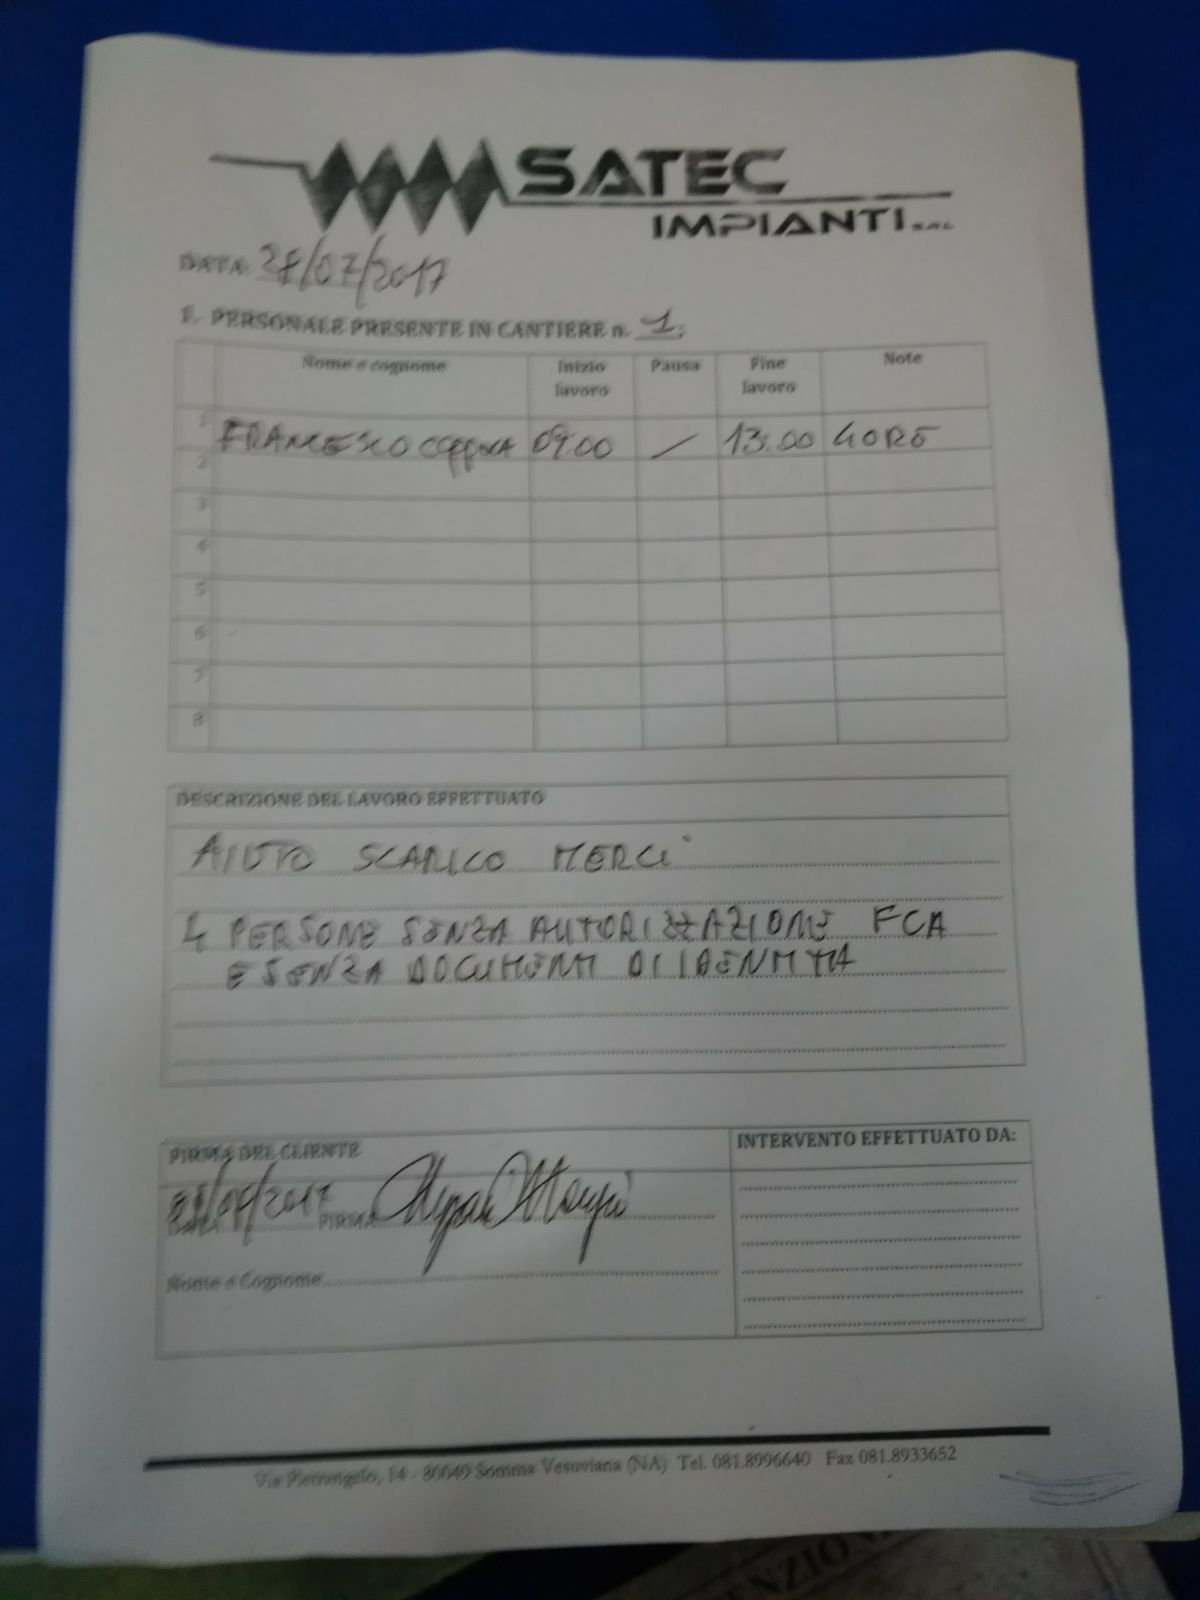 SATEC
IMPIANTI S.R.L.
DATA: 28/07/2017
1. PERSONALE PRESENTE IN CANTIERE n. 1.
Nome e cognome Inizio lavoro Pausa Fine lavoro Note
1 FRANCESCO COPPOLA 09.00 / 13.00 4 ORE
2
3
4
5
6
7
8
DESCRIZIONE DEL LAVORO EFFETTUATO
AIUTO SCARICO MERCI
4 PERSONE SENZA AUTORIZZAZIONE FCA
E SENZA DOCUMENTI DI IDENTITA
FIRMA DEL CLIENTE INTERVENTO EFFETTUATO DA:
Data 28/07/2017 FIRMA
Nome e Cognome
Via Pierrangelo, 14 - 80049 Somma Vesuviana (NA) Tel. 081.8996640 Fax 081.8933652